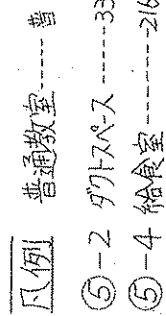 凡例 普通教室------普
⑤-2 ダクトスペース------33
⑤-4 給食室------216